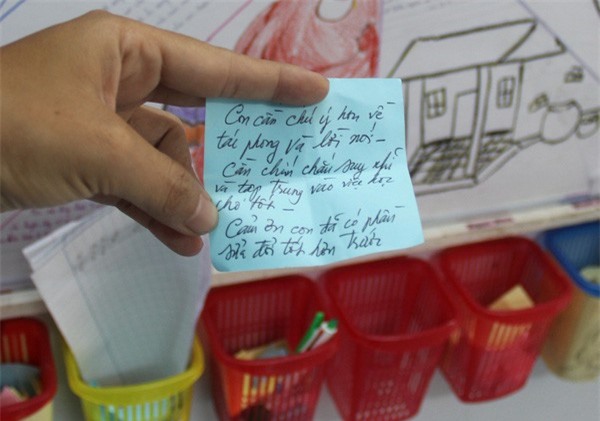 Con cần chú ý hơn về
tác phong và lời nói –
Cần chín chắn suy nghĩ
và tập trung vào việc học
cho tốt –
Cảm ơn con đã có phần
sửa đổi tốt hơn trước